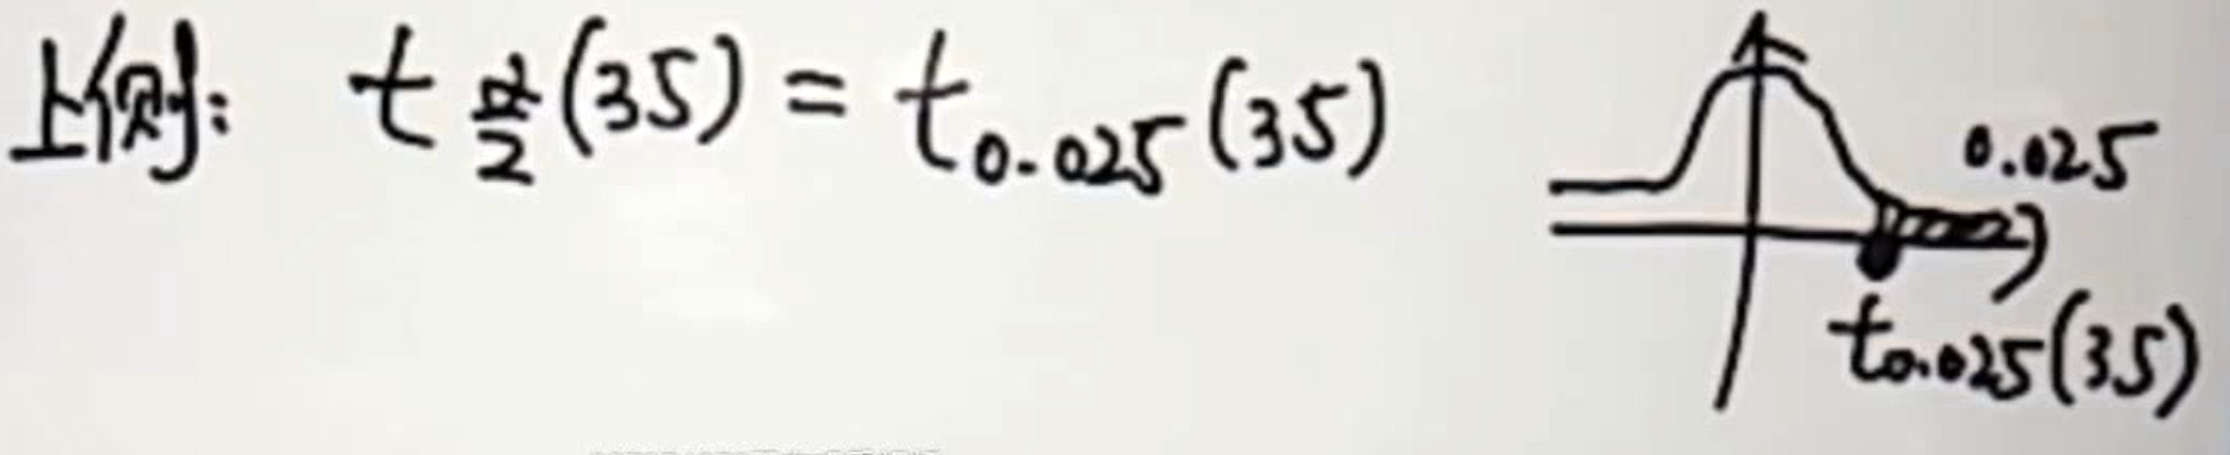 上侧: t α/2 (35) = t0.025 (35)
0.025
t0.025(35)